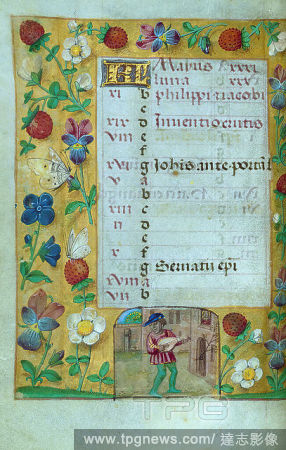 KL Maius xxxi
luna xxx
xi b philippi iacobi
c
xix d Inventio crucis
viii e
f
xvi g Johis ante portam
v a
b
xiii c
ii d
e
x f
g Servatii epi
xviii a
vii b
TPG
www.tpgnews.com/ 達志影像